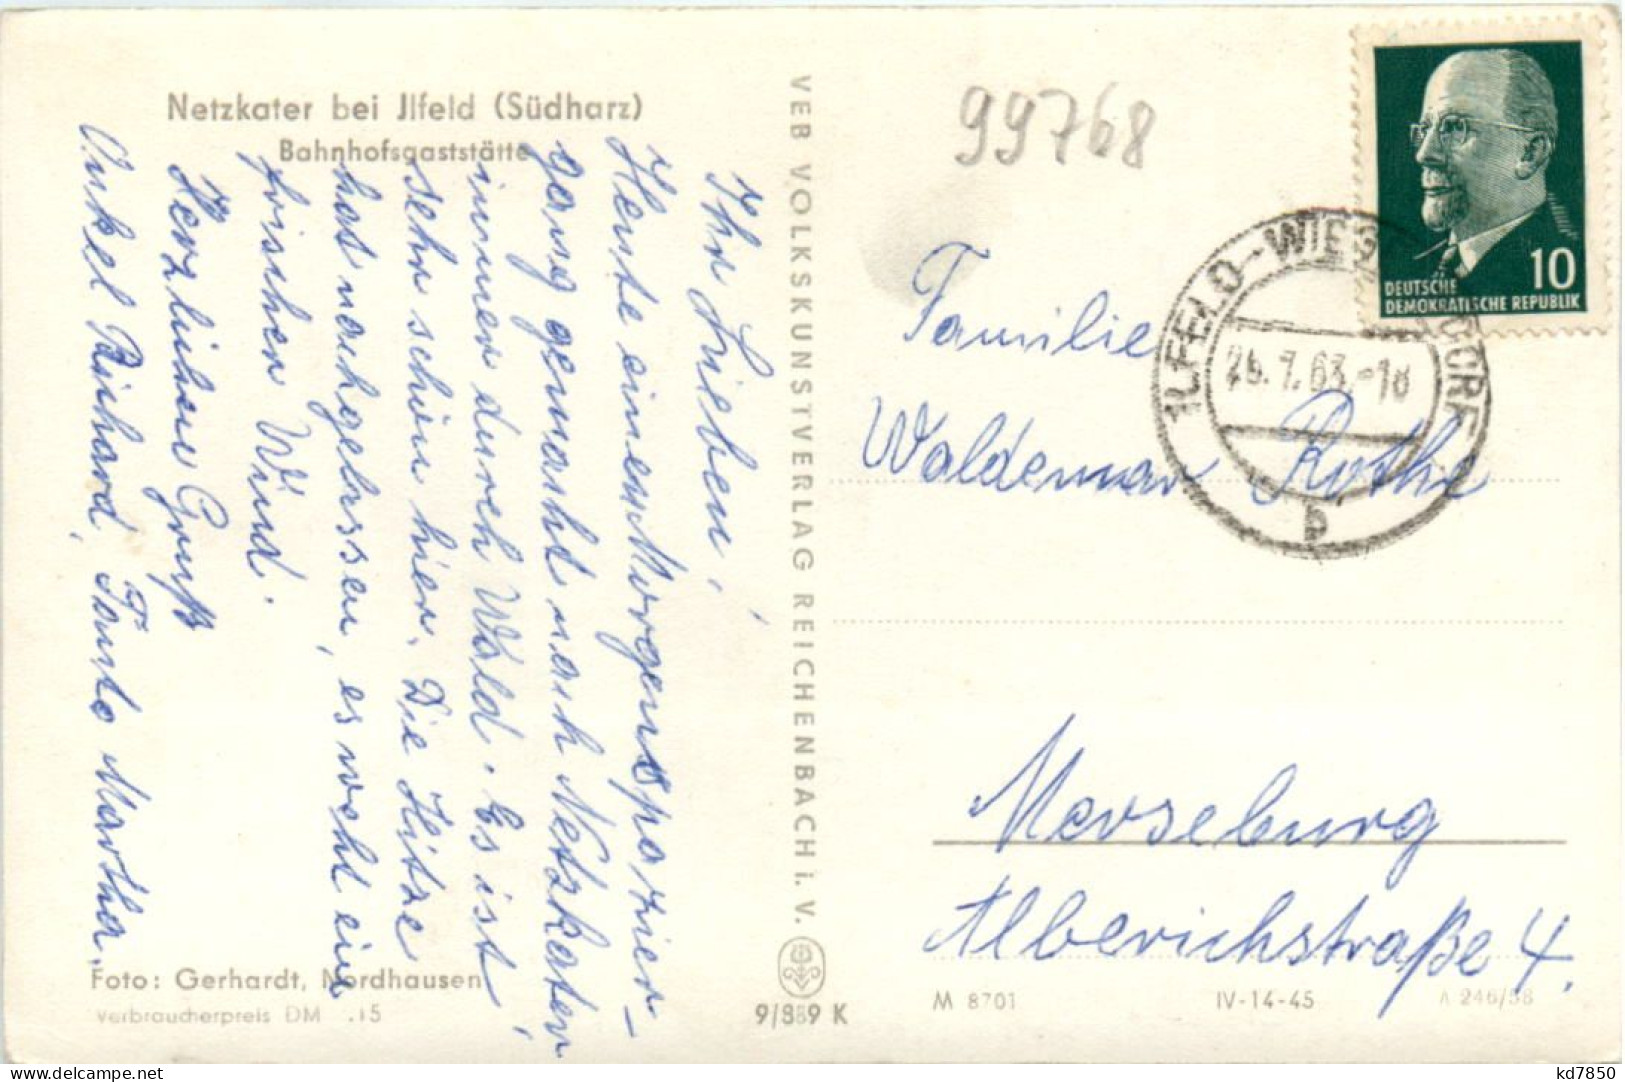 Netzkater bei Jlfeld (Südharz)
Bahnhofsgaststätte
Ihr Lieben,
Heute einen Morgenspazier-
gang gemacht nach Netzkater
immer durch Wald. Es ist
sehr schön hier. Die Hitze
hat nachgelassen, es weht ein
frischer Wind.
Herzlichen Gruß
Onkel Richard, Tante Martha.
Foto: Gerhardt, Nordhausen
Verbraucherpreis DM .15
VEB VOLKSKUNSTVERLAG REICHENBACH i. V.
9/889 K
99768
10
DEUTSCHE
DEMOKRATISCHE REPUBLIK
26.7.63.-18
b
Familie
Waldemar Rothe
Merseburg
Alberichstraße 4.
M 8701 IV-14-45 A 246/58
kd7850